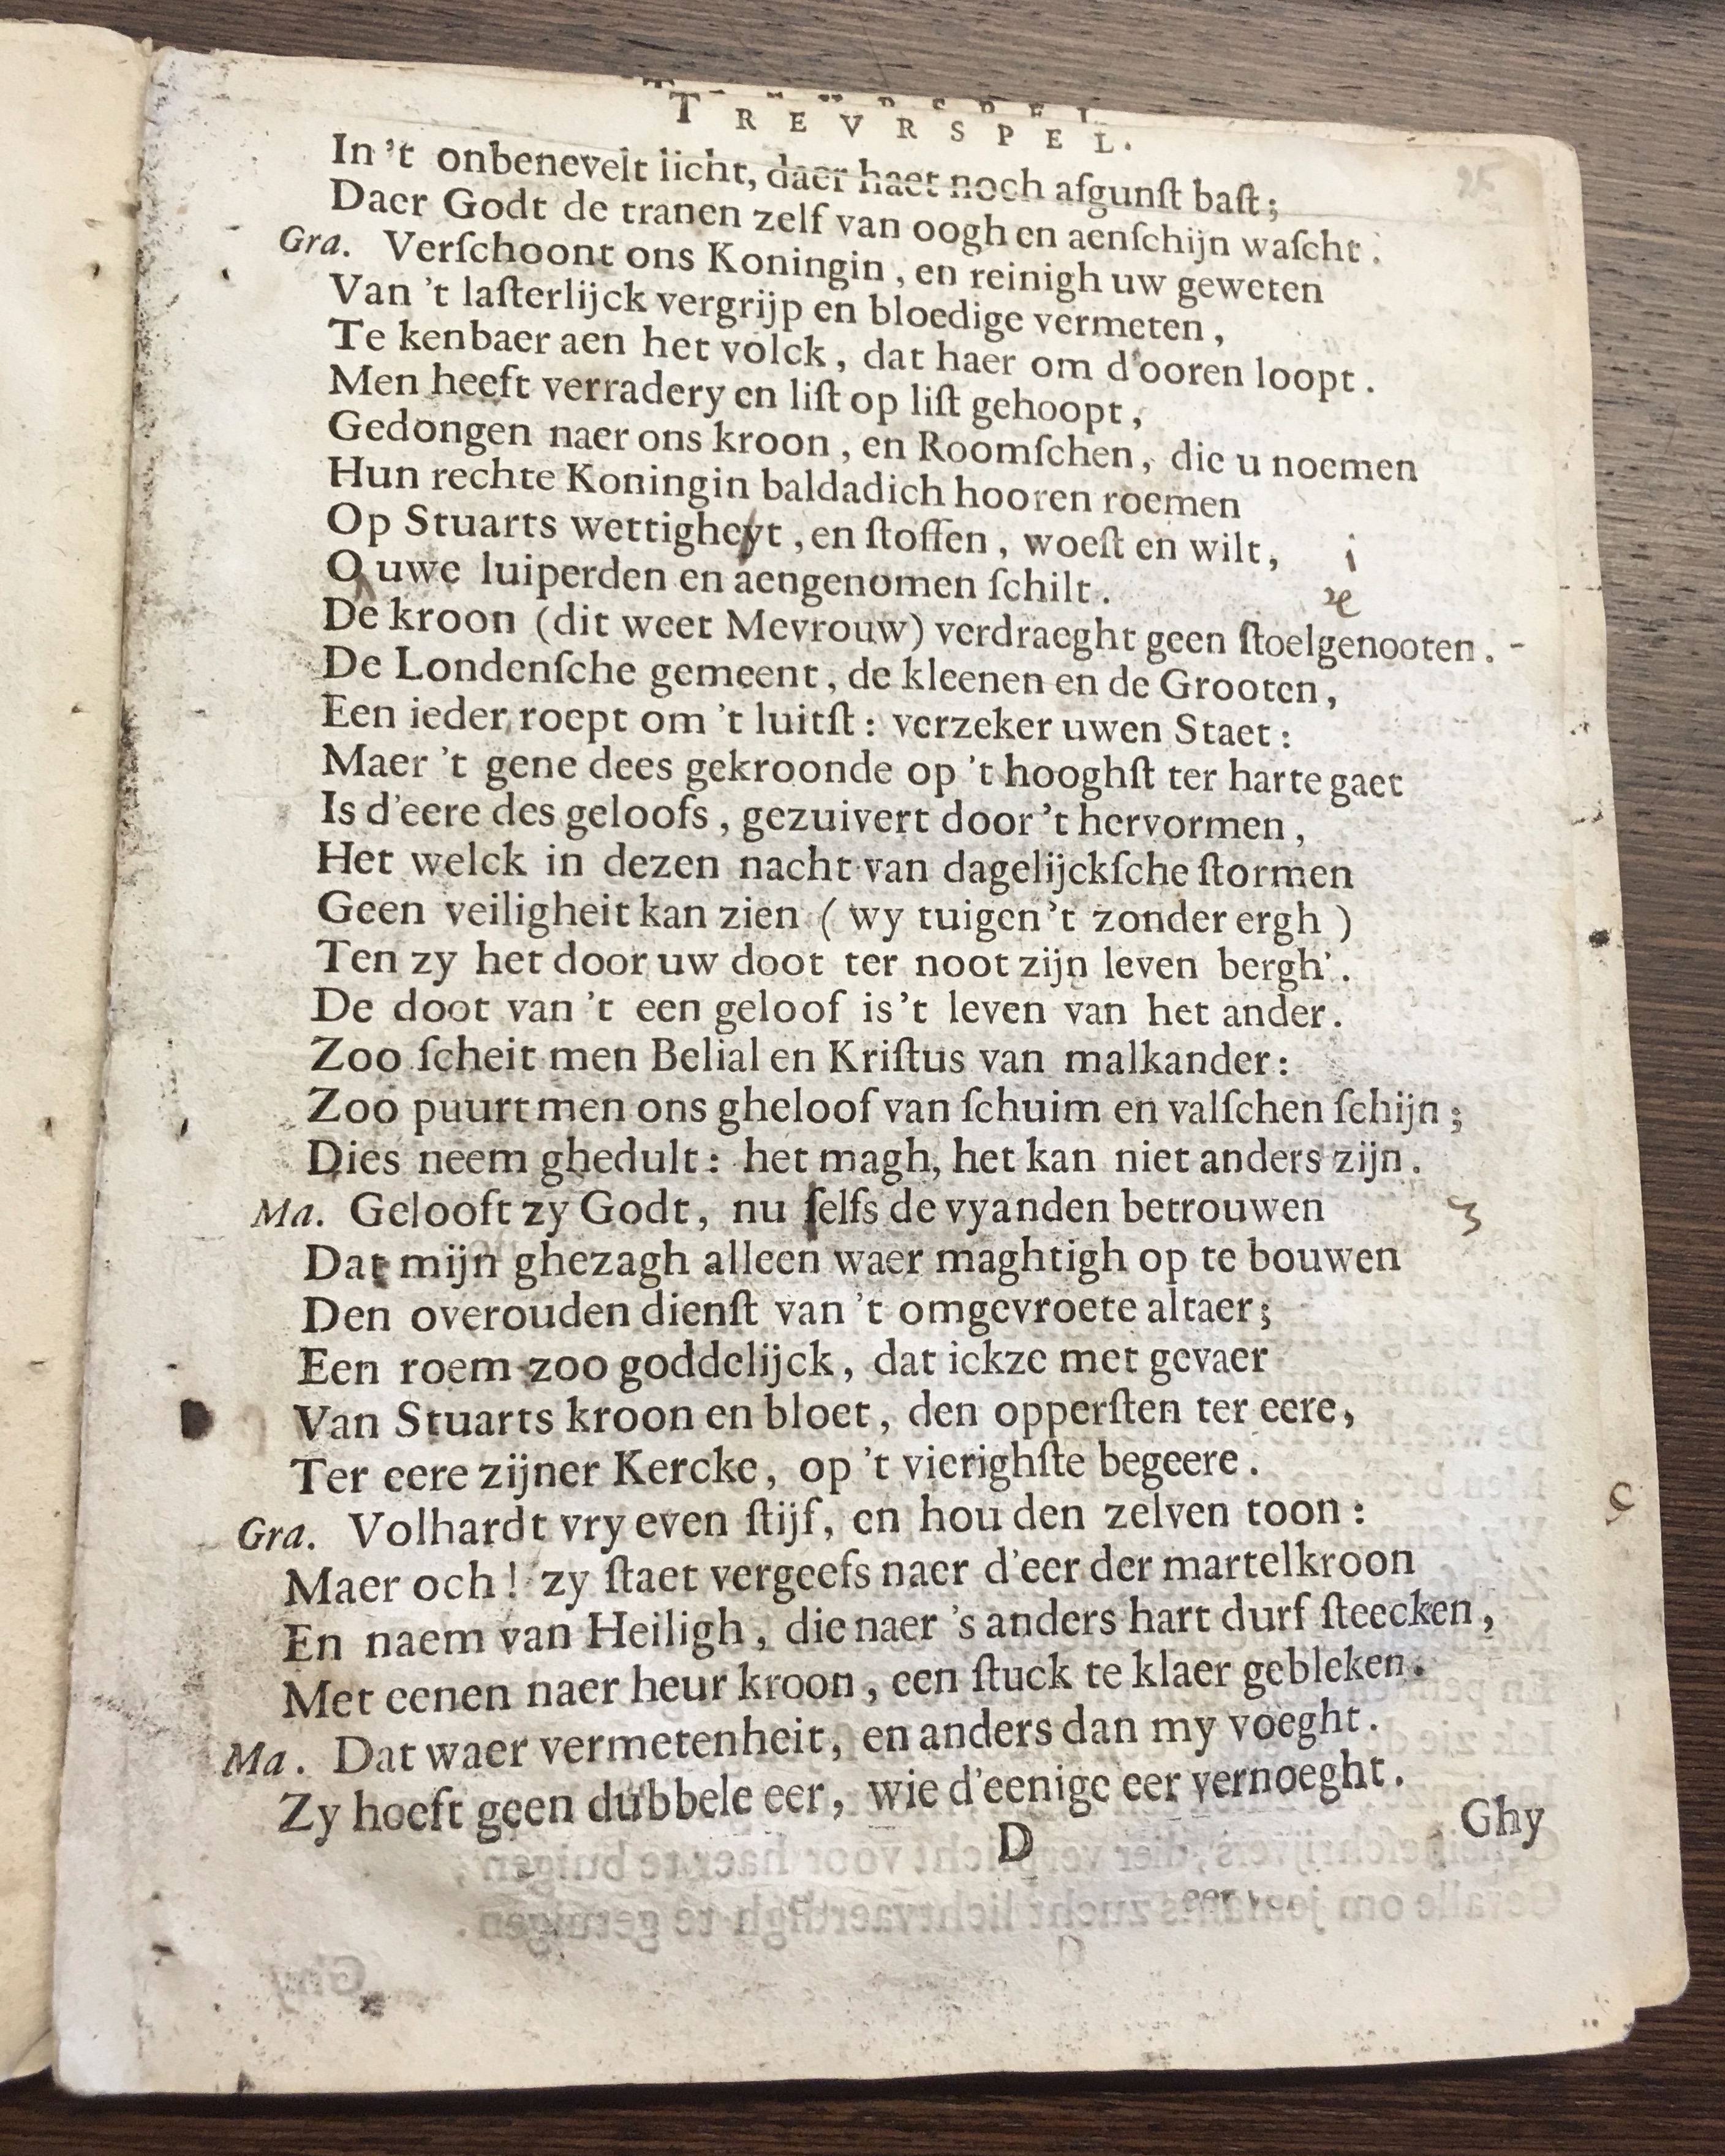 TREVRSPEL.
25
In 't onbenevelt licht, daer haet noch afgunſt baſt;
Daer Godt de tranen zelf van oogh en aenſchijn waſcht.
Gra. Verſchoont ons Koningin, en reinigh uw geweten
Van 't laſterlijck vergrijp en bloedige vermeten,
Te kenbaer aen het volck, dat haer om d'ooren loopt.
Men heeft verradery en liſt op liſt gehoopt,
Gedongen naer ons kroon, en Roomſchen, die u noemen
Hun rechte Koningin baldadich hooren roemen
Op Stuarts wettigheyt, en ſtoffen, woeſt en wilt, i
O uwe luiperden en aengenomen ſchilt.
De kroon (dit weet Mevrouw) verdraeght geen ſtoelgenooten. -
De Londenſche gemeent, de kleenen en de Grooten,
Een ieder roept om 't luitſt: verzeker uwen Staet:
Maer 't gene dees gekroonde op 't hooghſt ter harte gaet
Is d'eere des geloofs, gezuivert door 't hervormen,
Het welck in dezen nacht van dagelijckſche ſtormen
Geen veiligheit kan zien (wy tuigen 't zonder ergh)
Ten zy het door uw doot ter noot zijn leven bergh'.
De doot van 't een geloof is 't leven van het ander.
Zoo ſcheit men Belial en Kriſtus van malkander:
Zoo puurt men ons gheloof van ſchuim en valſchen ſchijn;
Dies neem ghedult: het magh, het kan niet anders zijn.
Ma. Gelooft zy Godt, nu ſelfs de vyanden betrouwen z
Dat mijn ghezagh alleen waer maghtigh op te bouwen
Den overouden dienſt van 't omgevroete altaer;
Een roem zoo goddelijck, dat ickze met gevaer
Van Stuarts kroon en bloet, den opperſten ter eere,
Ter eere zijner Kercke, op 't vierighſte begeere.
Gra. Volhardt vry even ſtijf, en hou den zelven toon:
Maer och! zy ſtaet vergeefs naer d'eer der martelkroon
En naem van Heiligh, die naer 's anders hart durf ſteecken,
Met eenen naer heur kroon, een ſtuck te klaer gebleken.
Ma. Dat waer vermetenheit, en anders dan my voeght.
Zy hoeft geen dubbele eer, wie d'eenige eer vernoeght.
D Ghy